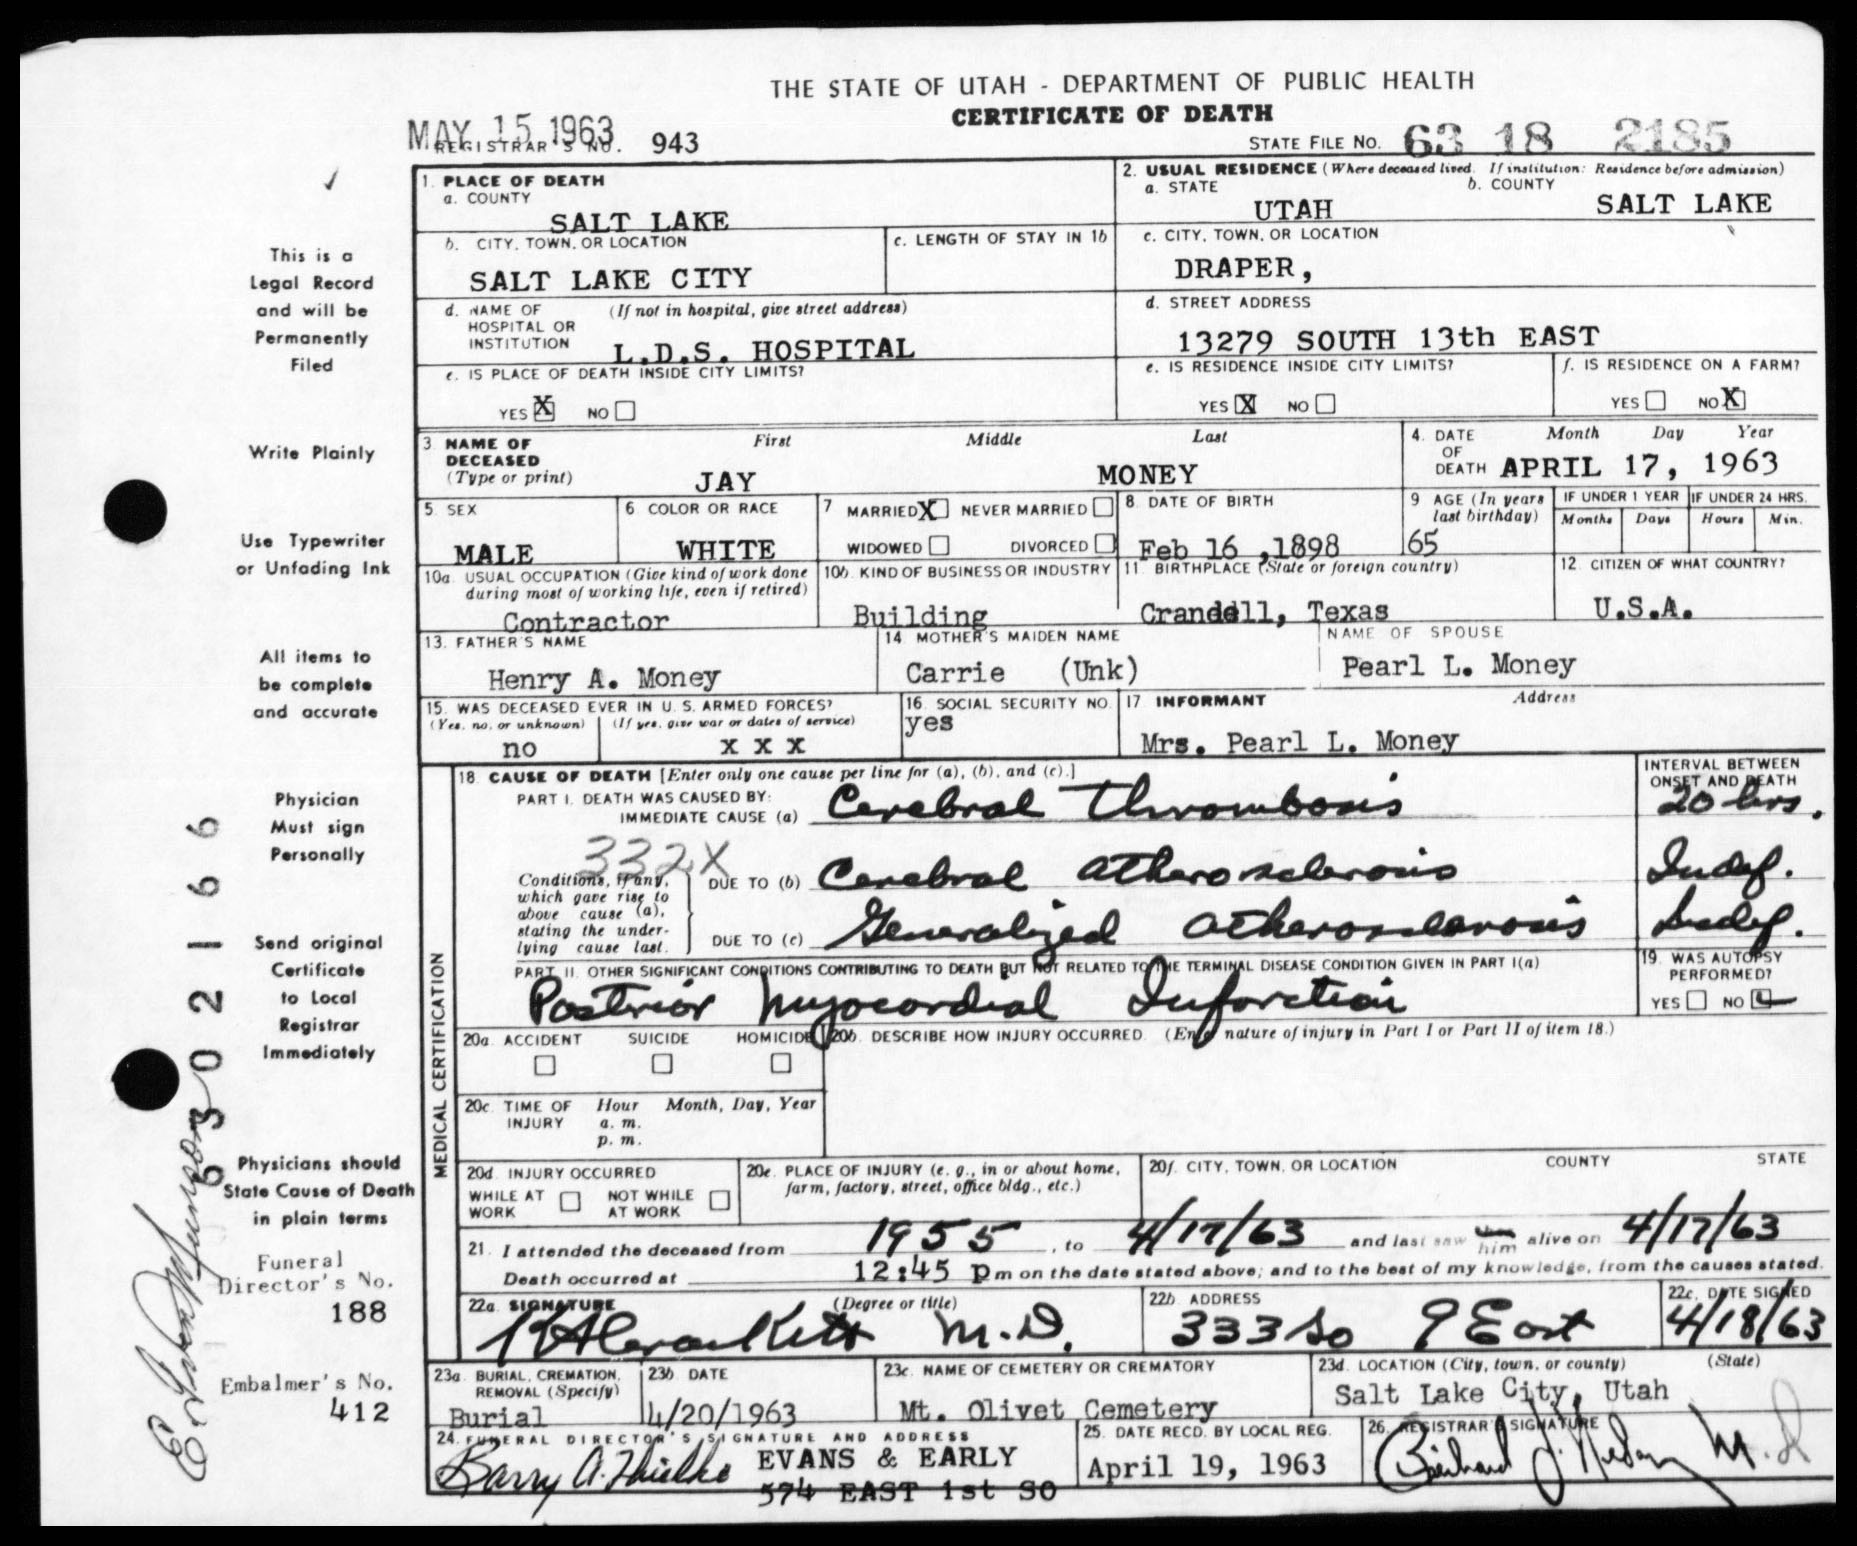 THE STATE OF UTAH - DEPARTMENT OF PUBLIC HEALTH
CERTIFICATE OF DEATH
MAY 15 1963
REGISTRAR'S NO. 943
STATE FILE NO. 63 18 2185
1. PLACE OF DEATH
a. COUNTY
SALT LAKE
2. USUAL RESIDENCE (Where deceased lived. If institution: Residence before admission)
a. STATE b. COUNTY
UTAH SALT LAKE
b. CITY, TOWN, OR LOCATION
SALT LAKE CITY
c. LENGTH OF STAY IN 1b
c. CITY, TOWN, OR LOCATION
DRAPER,
d. NAME OF HOSPITAL OR INSTITUTION (If not in hospital, give street address)
L.D.S. HOSPITAL
d. STREET ADDRESS
13279 SOUTH 13th EAST
e. IS PLACE OF DEATH INSIDE CITY LIMITS?
YES X NO
e. IS RESIDENCE INSIDE CITY LIMITS?
YES X NO
f. IS RESIDENCE ON A FARM?
YES NO X
3. NAME OF DECEASED (Type or print)
First Middle Last
JAY MONEY
4. DATE OF DEATH Month Day Year
APRIL 17, 1963
5. SEX
MALE
6. COLOR OR RACE
WHITE
7. MARRIED X NEVER MARRIED
WIDOWED DIVORCED
8. DATE OF BIRTH
Feb 16 ,1898
9. AGE (In years last birthday)
65
IF UNDER 1 YEAR
Months Days
IF UNDER 24 HRS.
Hours Min.
10a. USUAL OCCUPATION (Give kind of work done during most of working life, even if retired)
Contractor
10b. KIND OF BUSINESS OR INDUSTRY
Building
11. BIRTHPLACE (State or foreign country)
Crandell, Texas
12. CITIZEN OF WHAT COUNTRY?
U.S.A.
13. FATHER'S NAME
Henry A. Money
14. MOTHER'S MAIDEN NAME
Carrie (Unk)
NAME OF SPOUSE
Pearl L. Money
15. WAS DECEASED EVER IN U.S. ARMED FORCES?
(Yes, no, or unknown) (If yes, give war or dates of service)
no x x x
16. SOCIAL SECURITY NO.
yes
17. INFORMANT Address
Mrs. Pearl L. Money
MEDICAL CERTIFICATION
18. CAUSE OF DEATH [Enter only one cause per line for (a), (b), and (c).]
INTERVAL BETWEEN ONSET AND DEATH
PART I. DEATH WAS CAUSED BY:
IMMEDIATE CAUSE (a) Cerebral Thrombosis 20 hrs.
332X
Conditions, if any, which gave rise to above cause (a), stating the underlying cause last.
DUE TO (b) Cerebral atherosclerosis Indef.
DUE TO (c) Generalized atherosclerosis Indef.
PART II. OTHER SIGNIFICANT CONDITIONS CONTRIBUTING TO DEATH BUT NOT RELATED TO THE TERMINAL DISEASE CONDITION GIVEN IN PART I(a)
Posterior Myocardial Infarction
19. WAS AUTOPSY PERFORMED?
YES NO
20a. ACCIDENT SUICIDE HOMICIDE
20b. DESCRIBE HOW INJURY OCCURRED. (Enter nature of injury in Part I or Part II of item 18.)
20c. TIME OF INJURY Hour Month, Day, Year
a. m.
p. m.
20d. INJURY OCCURRED
WHILE AT WORK NOT WHILE AT WORK
20e. PLACE OF INJURY (e. g., in or about home, farm, factory, street, office bldg., etc.)
20f. CITY, TOWN, OR LOCATION COUNTY STATE
21. I attended the deceased from 1955, to 4/17/63 and last saw him alive on 4/17/63
Death occurred at 12:45 pm on the date stated above; and to the best of my knowledge, from the causes stated.
22a. SIGNATURE (Degree or title)
M.D.
22b. ADDRESS
333 So 9 East
22c. DATE SIGNED
4/18/63
23a. BURIAL, CREMATION, REMOVAL (Specify)
Burial
23b. DATE
4/20/1963
23c. NAME OF CEMETERY OR CREMATORY
Mt. Olivet Cemetery
23d. LOCATION (City, town, or county) (State)
Salt Lake City, Utah
24. FUNERAL DIRECTOR'S SIGNATURE AND ADDRESS
Barry A. EVANS & EARLY
574 EAST 1st SO
25. DATE RECD. BY LOCAL REG.
April 19, 1963
26. REGISTRAR'S SIGNATURE
M.D
This is a
Legal Record
and will be
Permanently
Filed
Write Plainly
Use Typewriter
or Unfading Ink
All items to
be complete
and accurate
Physician
Must sign
Personally
Send original
Certificate
to Local
Registrar
Immediately
Physicians should
State Cause of Death
in plain terms
Funeral
Director's No.
188
Embalmer's No.
412
63 02166